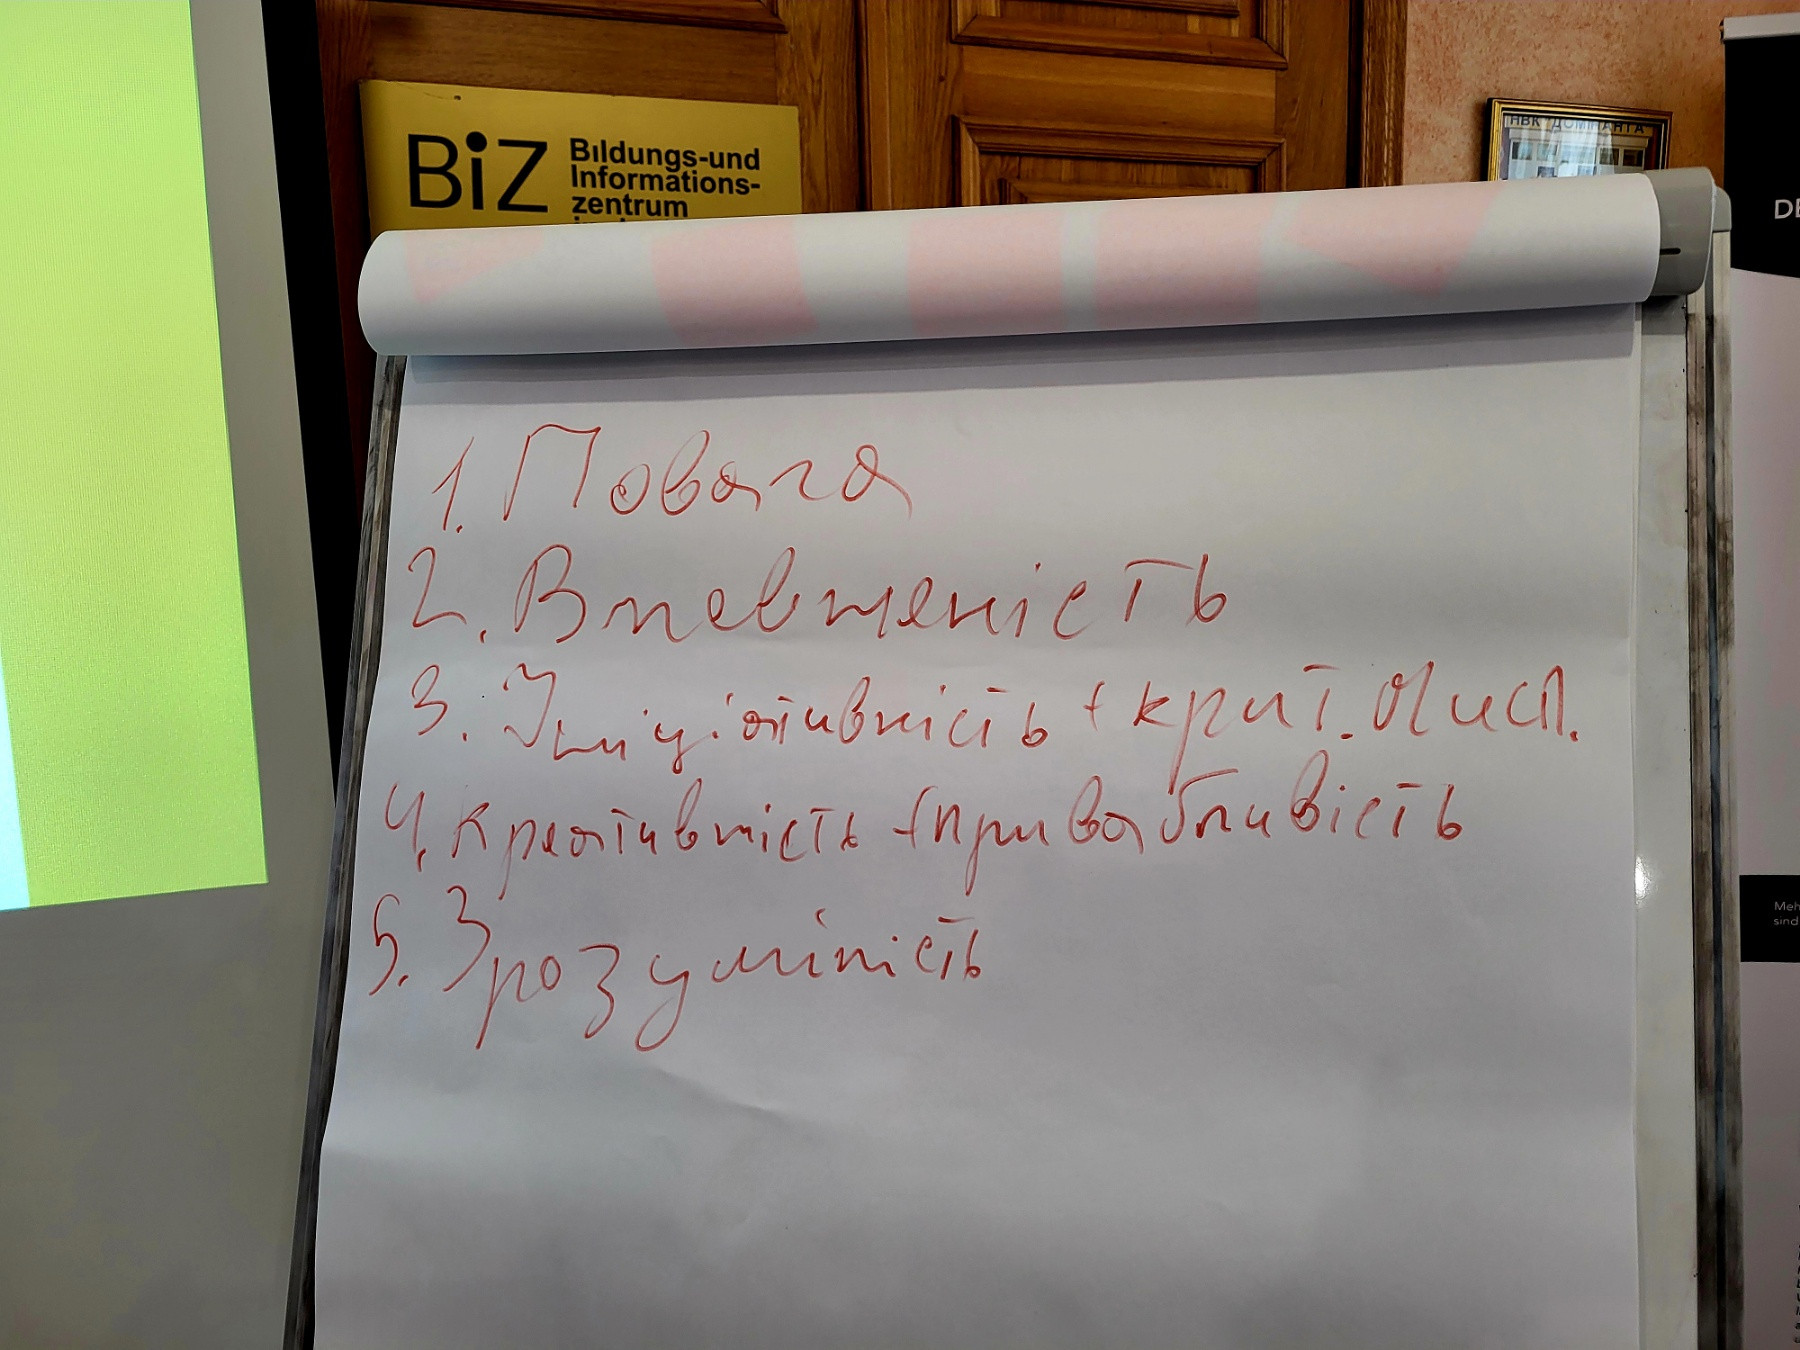 BiZ
Bildungs-und
Informations-
zentrum
НВК ДОМІНАНТА
DE
1. Повага
2. Впевненість
3. Ініціативність + крит. мисл.
4. Креативність + привабливість
5. Зрозумілість
Meh
sind